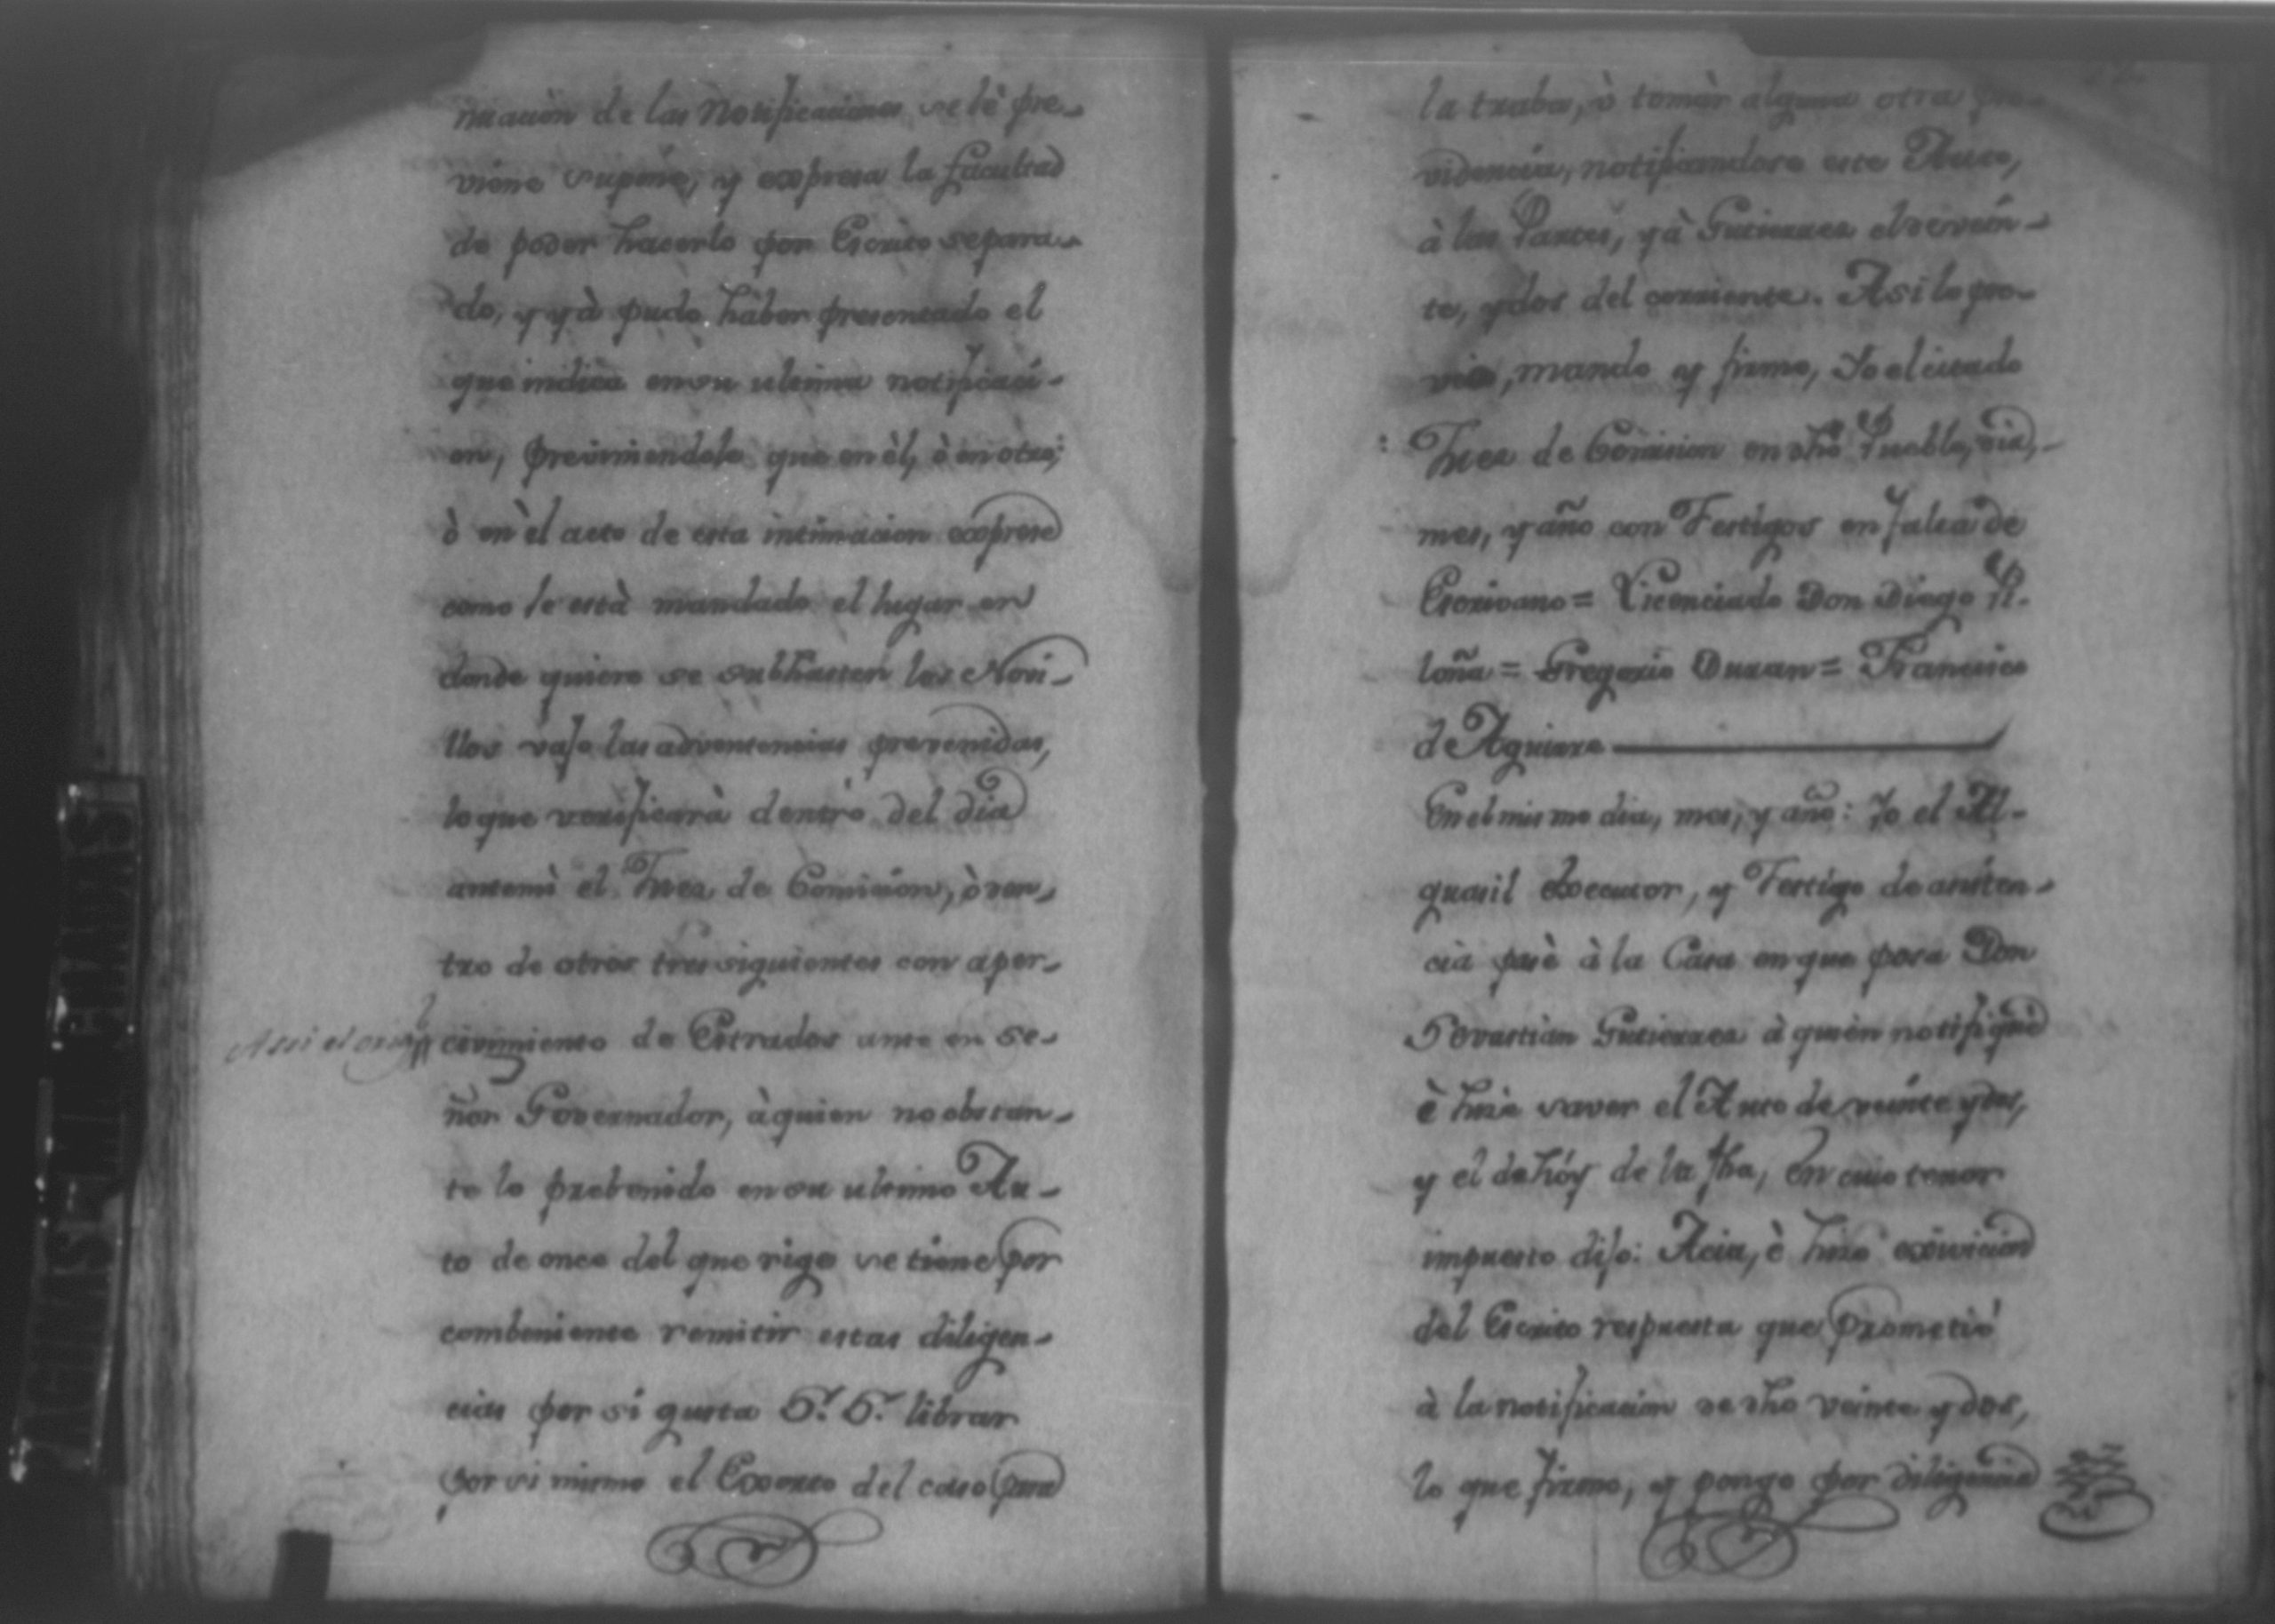 nuaciòn de las Notificaciones se lè pre-
viene supone, y expresa la facultad
de poder hacerlo por Escrito separa-
do, y yà pudo haber presentado el
que indica en su ultima notificaci-
on, previniendole que en èl, ò en otro;
ò en èl acto de esta intimacion exprese
como le està mandado el lugar en
donde quiere se subhasten los Novi-
llos vajo las advertencias prevenidas,
lo que verificarà dentro del dia
antemì el Juez de Comicion, ò den-
tro de otros tres siguientes con aper-
civimiento de Estrados ante en Se-
ñor Governador, à quien no obstan-
te lo prebenido en su ultimo Au-
to de once del que rige se tiene por
combeniente remitir estas diligen-
cias por si gusta S.S. librar
por si mismo el Exorto del caso para
Assi el orig.l
la traba, ò tomàr alguna otra pro-
videncia, notificandose este Auto,
à las Partes, y à Gutierrez el vein-
te, y dos del corriente. Asi lo pro-
veo, mando y firmo, Yo el citado
Juez de Comision en dho Pueblo, dia,
mes, y año con Testigos en falta de
Escrivano = Licenciado Don Diego Pi-
loña = Gregorio Duran = Francisco
de Aguirre
En el mismo dia, mes, y año: Yo el Al-
guasil executor, y Testigo de asisten-
cia pasè à la Casa en que posa Don
Sevastiàn Gutierrez à quièn notifiquè
è hize saver el Auto de veinte y dos,
y el de hòy de la fha, En cuio tenor
impuesto dijo: Acia, è hizo exivicion
del Escrito respuesta que prometiò
à la notificacion de dho veinte y dos,
lo que firmo, y pongo por diligencia